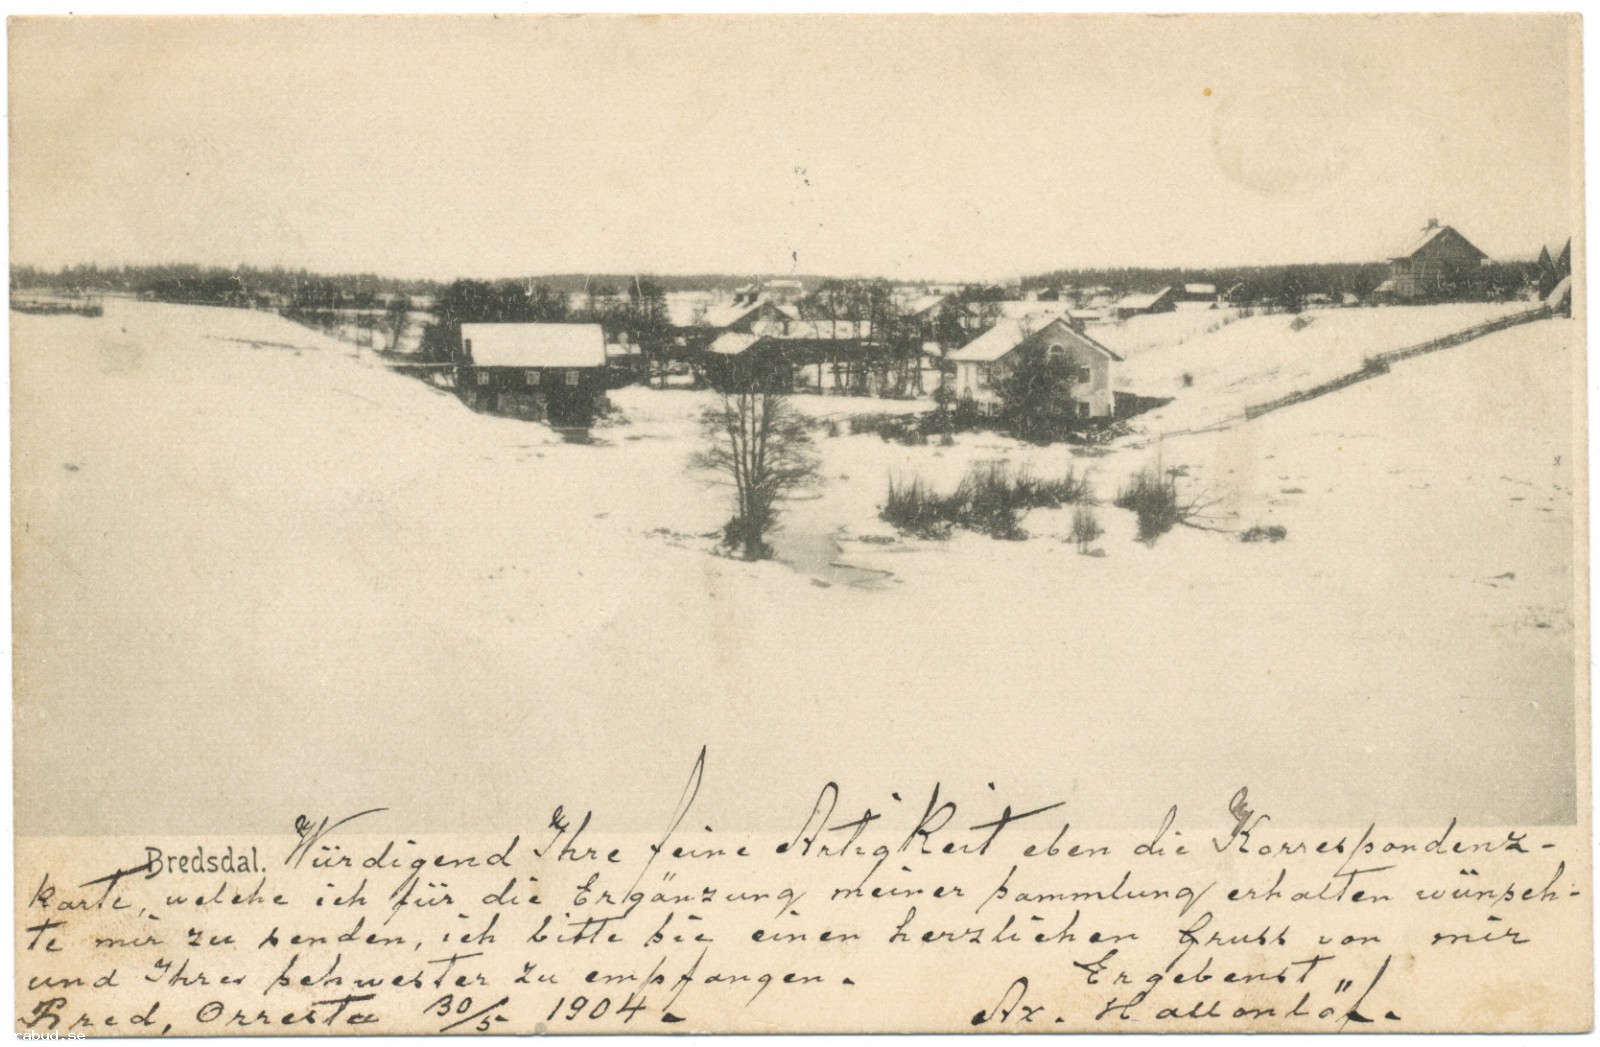 Bredsdal. Würdigend Ihre feine Artigkeit eben die Korrespondenz-
karte, welche ich für die Ergänzung meiner sammlung erhalten wünsch-
te mir zu senden, ich bitte sie einen herzlichen Gruss von mir
und Ihrer schwester zu empfangen.
Ergebenst
Bred, Orresta 30/5 1904.
Ax.
rabud.se